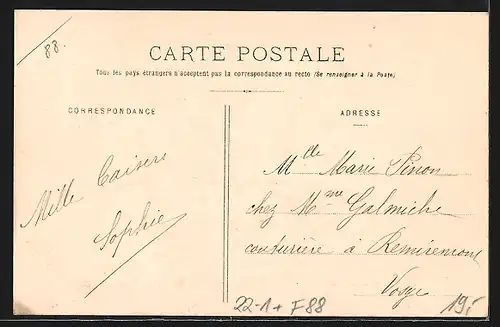 88.
CARTE POSTALE
Tous les pays étrangers n'acceptent pas la correspondance au recto (Se renseigner à la Poste)
CORRESPONDANCE
ADRESSE
Mille Baisers
Sophie
Mlle Marie Pinon
chez Mme Galmiche
couturière à Remiremont
Vosges
22-1+F88
19,-